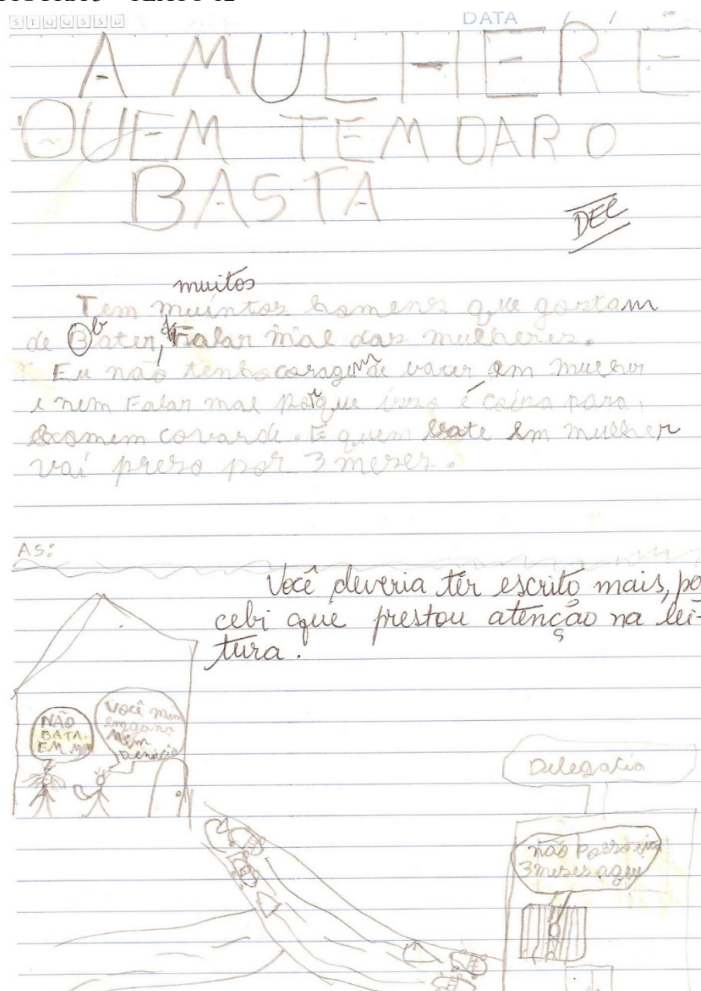 S T Q Q S S D
DATA / /
A MULHER É
QUEM TEM DAR O
BASTA
DEC
muitos
Tem muintos homens que gostam
de Bater, Falar mal das mulheres.
Eu não tenho coragem de bater em mulher
e nem Falar mal porque isso é coisa para
homem covarde. E quem bate em mulher
vai preso por 3 meses.
AS:
Você deveria ter escrito mais, per
cebi que prestou atenção na lei-
tura.
NÃO
BATA
EM MIM
Você
Delegacia
não
3 meses aqui